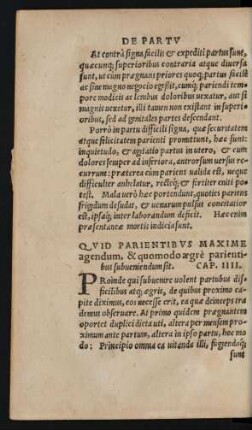 DE PARTV
At contrà signa facilis & expediti partus sunt,
quæcunq; superioribus contraria atque diversa
sunt, ut cùm prægnans priores quoq; partus facilè
ac sine magno negocio egessit, cumq; parienti tem
pore modicis ac lenibus doloribus uexatur, aut si
magnis uexetur, illi tamen non existant in superi
oribus, sed ad genitales partes descendant.
Porrò in partu difficili signa, quæ securitatem
atque felicitatem parienti promittunt, hæc sunt:
inquietudo, & agitatio partus in utero, & cum
dolores semper ad inferiora, antrorsum uersus re
currunt: præterea cùm pariens ualida est, neque
difficulter anhelatur, rectéq; & fortiter eniti po
test. Mala uerò hæc portendunt, quoties pariens
frigidum desudat, & uenarum pulsus concitatior
est, ipsaq; inter laborandum deficit. Hæc enim
præsentaneæ mortis indicia sunt.
QVID PARIENTIBVS MAXIME
agendum, & quomodo ægrè parienti-
bus subueniendum sit. CAP. IIII.
PRoinde qui subuenire uolent partubus dif-
ficilibus atq; ægris, de quibus proximo ca-
pite diximus, eos necesse erit, ea quæ deinceps tra
demus obseruare. At primo quidem prægnantem
oportet duplici diæta uti, altera per mensem pro-
ximum ante partum, altera in ipso partu, hoc mo
do: Principio omnia ea uitanda illi, fugiendaq;
sunt